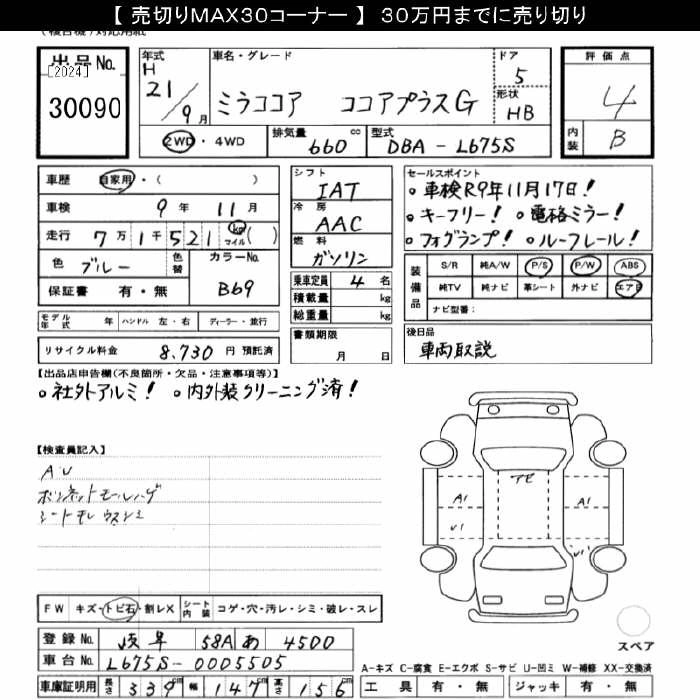 【 売切りMAX30コーナー 】 30万円までに売り切り
出品No.
[2024]
30090
年式 H 21/9月
車名・グレード
ミラココア ココアプラスG
ドア 5
形状 HB
評価点 4
内装 B
2WD・4WD
排気量 660 cc
型式 DBA-L675S
車歴 自家用・( )
車検 9年 11月
走行 7万1千521 km マイル ( )
色 ブルー 色替
カラーNo. B69
保証書 有・無
シフト IAT
冷房 AAC
燃料 ガソリン
乗車定員 4名
積載量 kg
総重量 kg
書類期限 月 日
セールスポイント
○車検R9年11月17日!
○キーフリー! ○電格ミラー!
○フォグランプ! ○ルーフレール!
装備品
S/R 純A/W P/S P/W ABS
純TV 純ナビ 革シート 外ナビ エアB
ナビ型番:
モデル年式 年 ハンドル 左・右 ディーラー・並行
リサイクル料金 8,730 円 預託済
後日品
車両取説
【出品店申告欄(不良箇所・欠品・注意事項等)】
○社外アルミ! ○内外装クリーニング済!
【検査員記入】
AU
ボンネットモールハゲ
シートモレ ウスシミ
アビ
A1 A1
U1 U1
FW キズ・トビ石・割レX シート内装 コゲ・穴・汚レ・シミ・破レ・スレ
登録No. 岐阜 58A あ 4500
車台No. L675S-0005505
車庫証明用 長さ 339cm 幅 147cm 高さ 156cm
スペア
A-キズ C-腐食 E-エクボ S-サビ U-凹ミ W-補修 XX-交換済
工具 有・無 ジャッキ 有・無